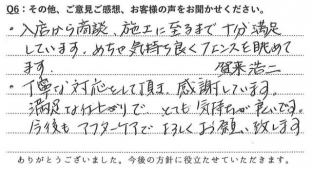 Q6：その他、ご意見ご感想、お客様の声をお聞かせください。
・入店から商談、施工に至るまで十分満足
しています。めちゃ気持ち良くフェンスを眺めて
ます。 賀来浩二
・丁寧な対応をして頂き、感謝しています。
満足な仕上がりで、とても気持ちが良いです。
今後もアフターケアでよろしくお願い致します
ありがとうございました。今後の方針に役立たせていただきます。